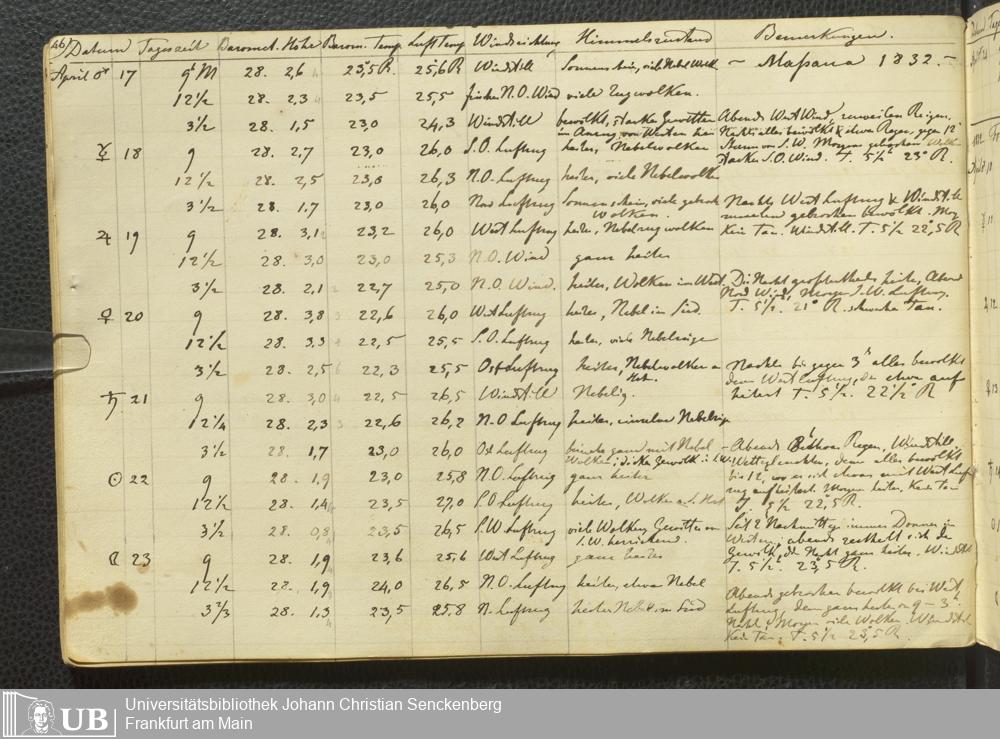 46/ Datum Tageszeit Baromet. Höhe Barom. Temp. Luft Temp Windrichtung Himmelszustand Bemerkungen.
April ♂ 17 9h M 28. 2,6 23,5 R. 25,6 R Windstill Sonnenschein, viele Nebel Wolk – Massaua 1832. –
12 1/2 28. 2,3 23,5 25,5 frischer N.O. Wind viele Zugwolken.
3 1/2 28. 1,5 23,0 24,3 Windstill bewölkt, starke Gewitter Abends West Wind, zuweilen Regen,
im Anzug von Westen her Nachts alles bewölkt & etwas Regen, gegen 12h
☿ 18 9 28. 2,7 23,0 26,0 S.O. Luftzug heiter, Nebelwolken Sturm von S.W. Morgen gebrochene Wolken
starker S.O. Wind. T. 5 1/2 h 23° R.
12 1/2 28. 2,5 23,0 26,3 N.O. Luftzug heiter, viele Nebelwolken
3 1/2 28. 1,7 23,0 26,0 Nord Luftzug Sonnenschein, viele gebroch Nachts West Luftzug & Windstill
Wolken. zuweilen gebrochen bewölkt. Morg
♃ 19 9 28. 3,1 23,2 26,0 West Luftzug heiter, Nebelzugwolken Kein Tau. Windstill. T. 5 1/2 22,5 R
12 1/2 28. 3,0 23,0 25,3 N.O. Wind ganz heiter
3 1/2 28. 2,1 22,7 25,0 N.O. Wind. heiter, Wolken im West Die Nacht größtentheils heiter, Abend
Nord Wind, Morgen S.W. Luftzug.
♀ 20 9 28. 3,8 22,6 26,0 West Luftzug heiter, Nebel im Süd. T. 5 1/2 21° R. schwacher Tau.
12 1/2 28. 3,3 22,5 25,5 S.O. Luftzug heiter, viele Nebelzüge
3 1/2 28. 2,5 22,3 25,5 Ost Luftzug heiter, Nebelwolken Nachts bis gegen 3h alles bewölkt
dann West Luftzug, der etwas auf
♄ 21 9 28. 3,0 22,5 26,5 Windstill Nebelig. heitert T. 5 1/2. 22 1/2° R
12 1/4 28. 2,3 22,6 26,2 N.O Luftzug heiter, einzelne Nebelzüge
3 1/2 28. 1,7 23,0 26,0 Ost Luftzug beinahe ganz mit Nebel – Abends Regen, Windstill
Wolken, dicke Gewölk i. S.W. Wetterleuchten, dann alles bewölkt
☉ 22 9 28. 1,9 23,0 25,8 N.O. Luftzug ganz heiter bis 12, wo es sich etwas mit West Luft
zug aufheitert. Morgen heiter, Kein Tau
12 1/2 28. 1,4 23,5 27,0 S.O Luftzug heiter, Wolken T. 5 1/2 22,5 R.
3 1/2 28. 0,8 23,5 26,5 S.W Luftzug viele Wolken, Gewitter Seit 2 Nachmittags immer Donner im
S.W. herrschend. Westen, abends zertheilt sich das
☾ 23 9 28. 1,9 23,6 25,6 West Luftzug ganz heiter Gewölk, die Nacht ganz heiter. Windstill
T. 5 1/2. 23,5 R.
12 1/2 28. 1,9 24,0 26,5 N.O. Luftzug heiter, etwas Nebel
Abends gebrochen bewölkt bei West
3 2/3 28. 1,3 23,5 25,8 N. Luftzug heiter Nebel im Süd Luftzug, dann ganz heiter 9 – 3h
Nacht, Morgen viele Wolken. Windstill
Kein Tau. T. 5 1/2 23,5 R.
UB
Universitätsbibliothek Johann Christian Senckenberg
Frankfurt am Main